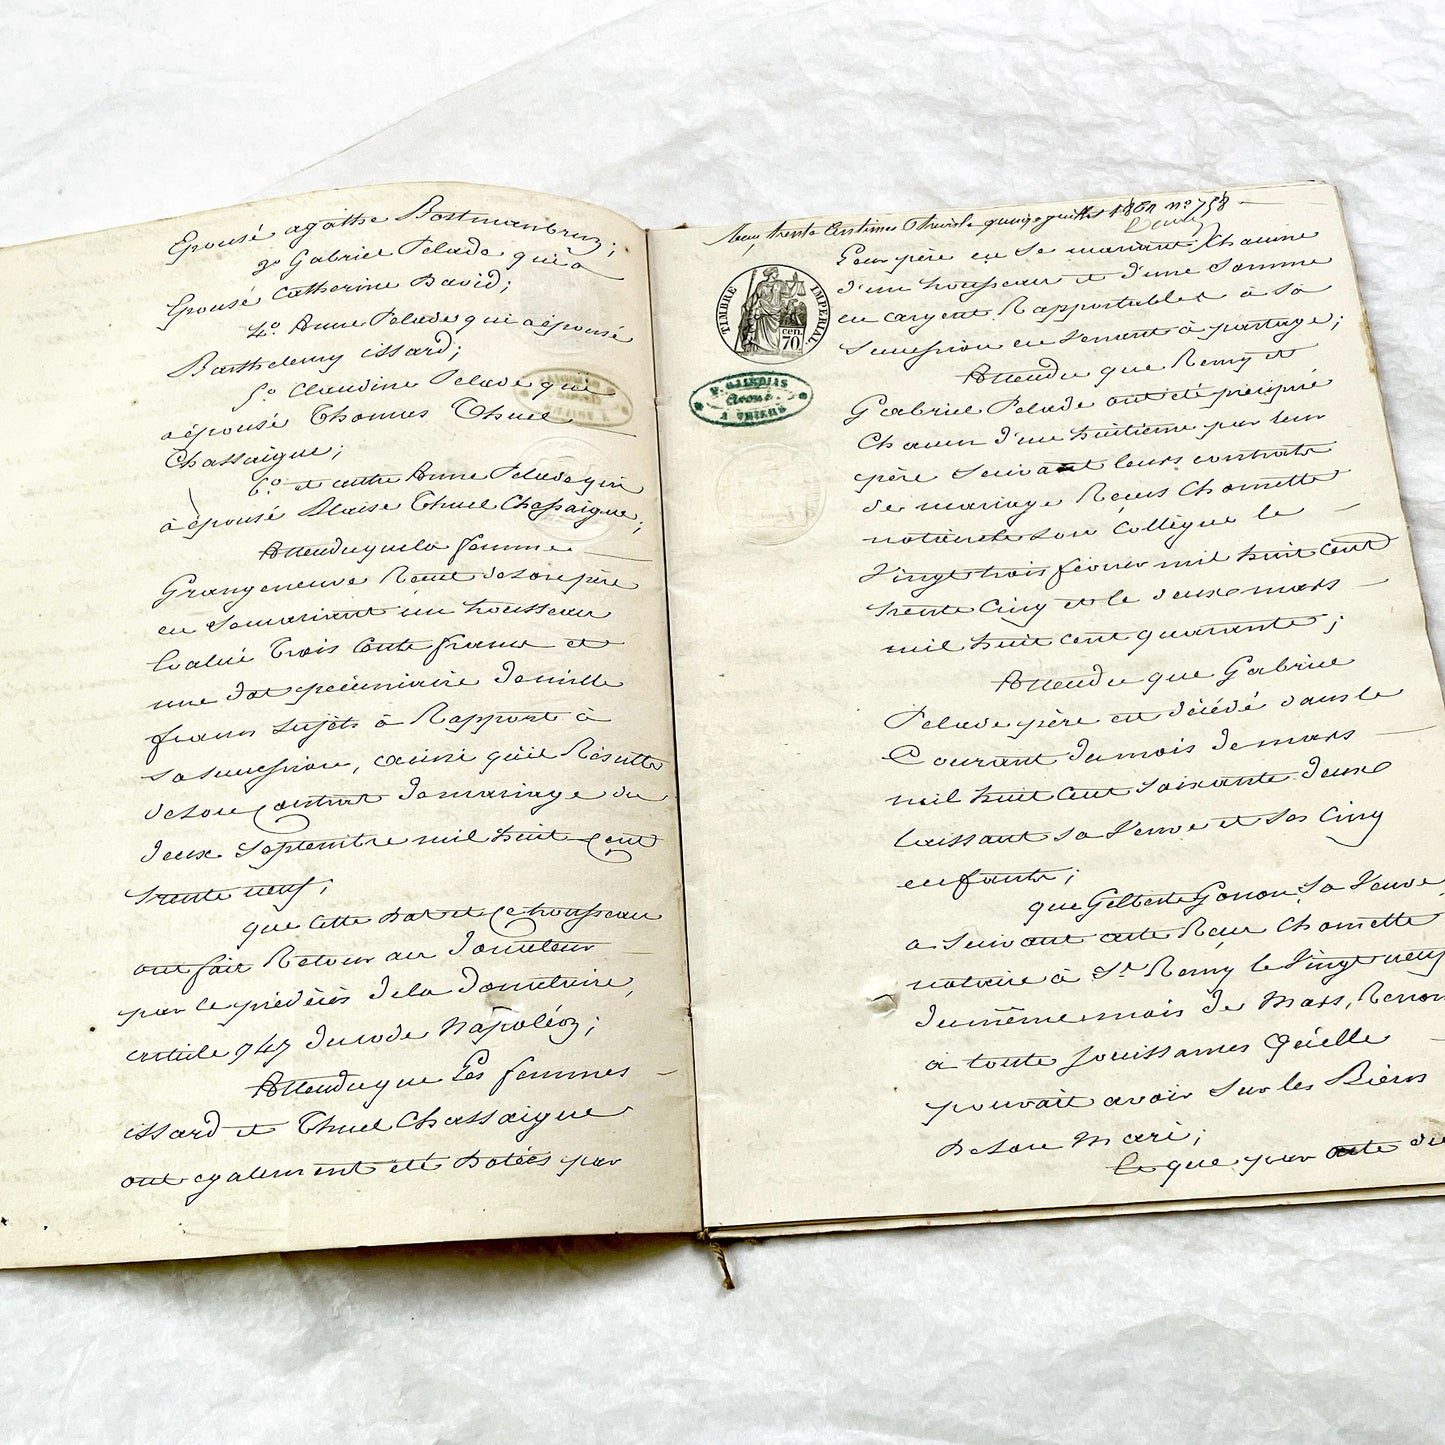 Epousé agathe Bostmanbrun;
3º Gabriel Pelade qui a
Epousé Catherine David;
4º. Anne Pelade qui a épousé
Barthelemy issard;
5º. Claudine Pelade qui
a épousé Thomas Thuel
Chassaigne;
6º. et autre Anne Pelade qui
à épousé Blaise Thuel Chassaigne;
Attendu que la femme
Grangeneuve Reçut de son père
en se mariant un trousseau
Evalué trois cents francs et
une dot pécuniaire de mille
francs sujets à Rapport à
sa succession, ainsi qu'il Résulte
de son Contrat de mariage du
deux Septembre mil huit Cent
trente neuf;
que cette dot et ce trousseau
ont fait Retour au donateur
par le prédécès de la donataire,
article 747 du code Napoléon;
Attendu que Les femmes
issard et Thuel Chassaigne
ont egalement été dotées par
trente Centimes Thiers le quinze juillet 186 nº 758
TIMBRE IMPERIAL
70 cen.
AVOUÉ
A THIERS
Leur père en se mariant Chacune
d'un trousseau et d'une Somme
en argent Rapportables à sa
Succession en venant à partage;
Attendu que Remy et
Gabriel Pelade ont été précipué
Chacun d'un huitième par leur
père Suivant leurs contrats
de mariage Reçus Chomette
notaire et son Collègue le
Vingt trois février mil huit Cent
trente Cinq et le deux mars
mil huit cent quarante;
Attendu que Gabriel
Pelade père est décédé dans le
Courant du mois de mars
mil huit cent soixante deux
laissant sa Veuve et ses Cinq
enfants;
que Gilberte Gonon, Sa Veuve
a Suivant acte Reçu Chomette
notaire à St Remy le Vingt neuf
du même mois de Mars, Renon
à toute Jouissances Qu'elle
pouvait avoir Sur les Biens
De son Mari;
Et que par acte du